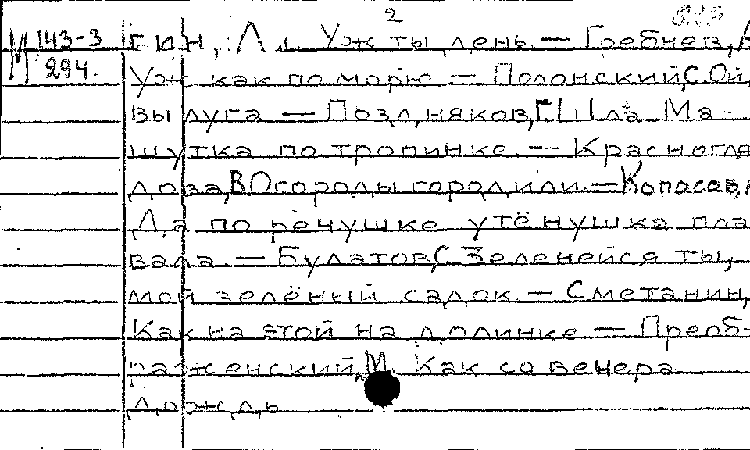 2
М 143-3 гин, Л. Уж ты день. — Гребнев,
294. Уж как по морю — Полонский, С. Ой,
вы луга — Поздняков, Шла Ма-
шутка по тропинке. — Красногля-
дова, В Огороды городили. — Копасов,
Да по речушке утёнушка пла-
вала. — Булатов, С. Зеленейся ты,
мой зелёный садок. — Сметанин,
Как на этой на долинке — Преоб-
раженский, М. Как со вечера
дождь